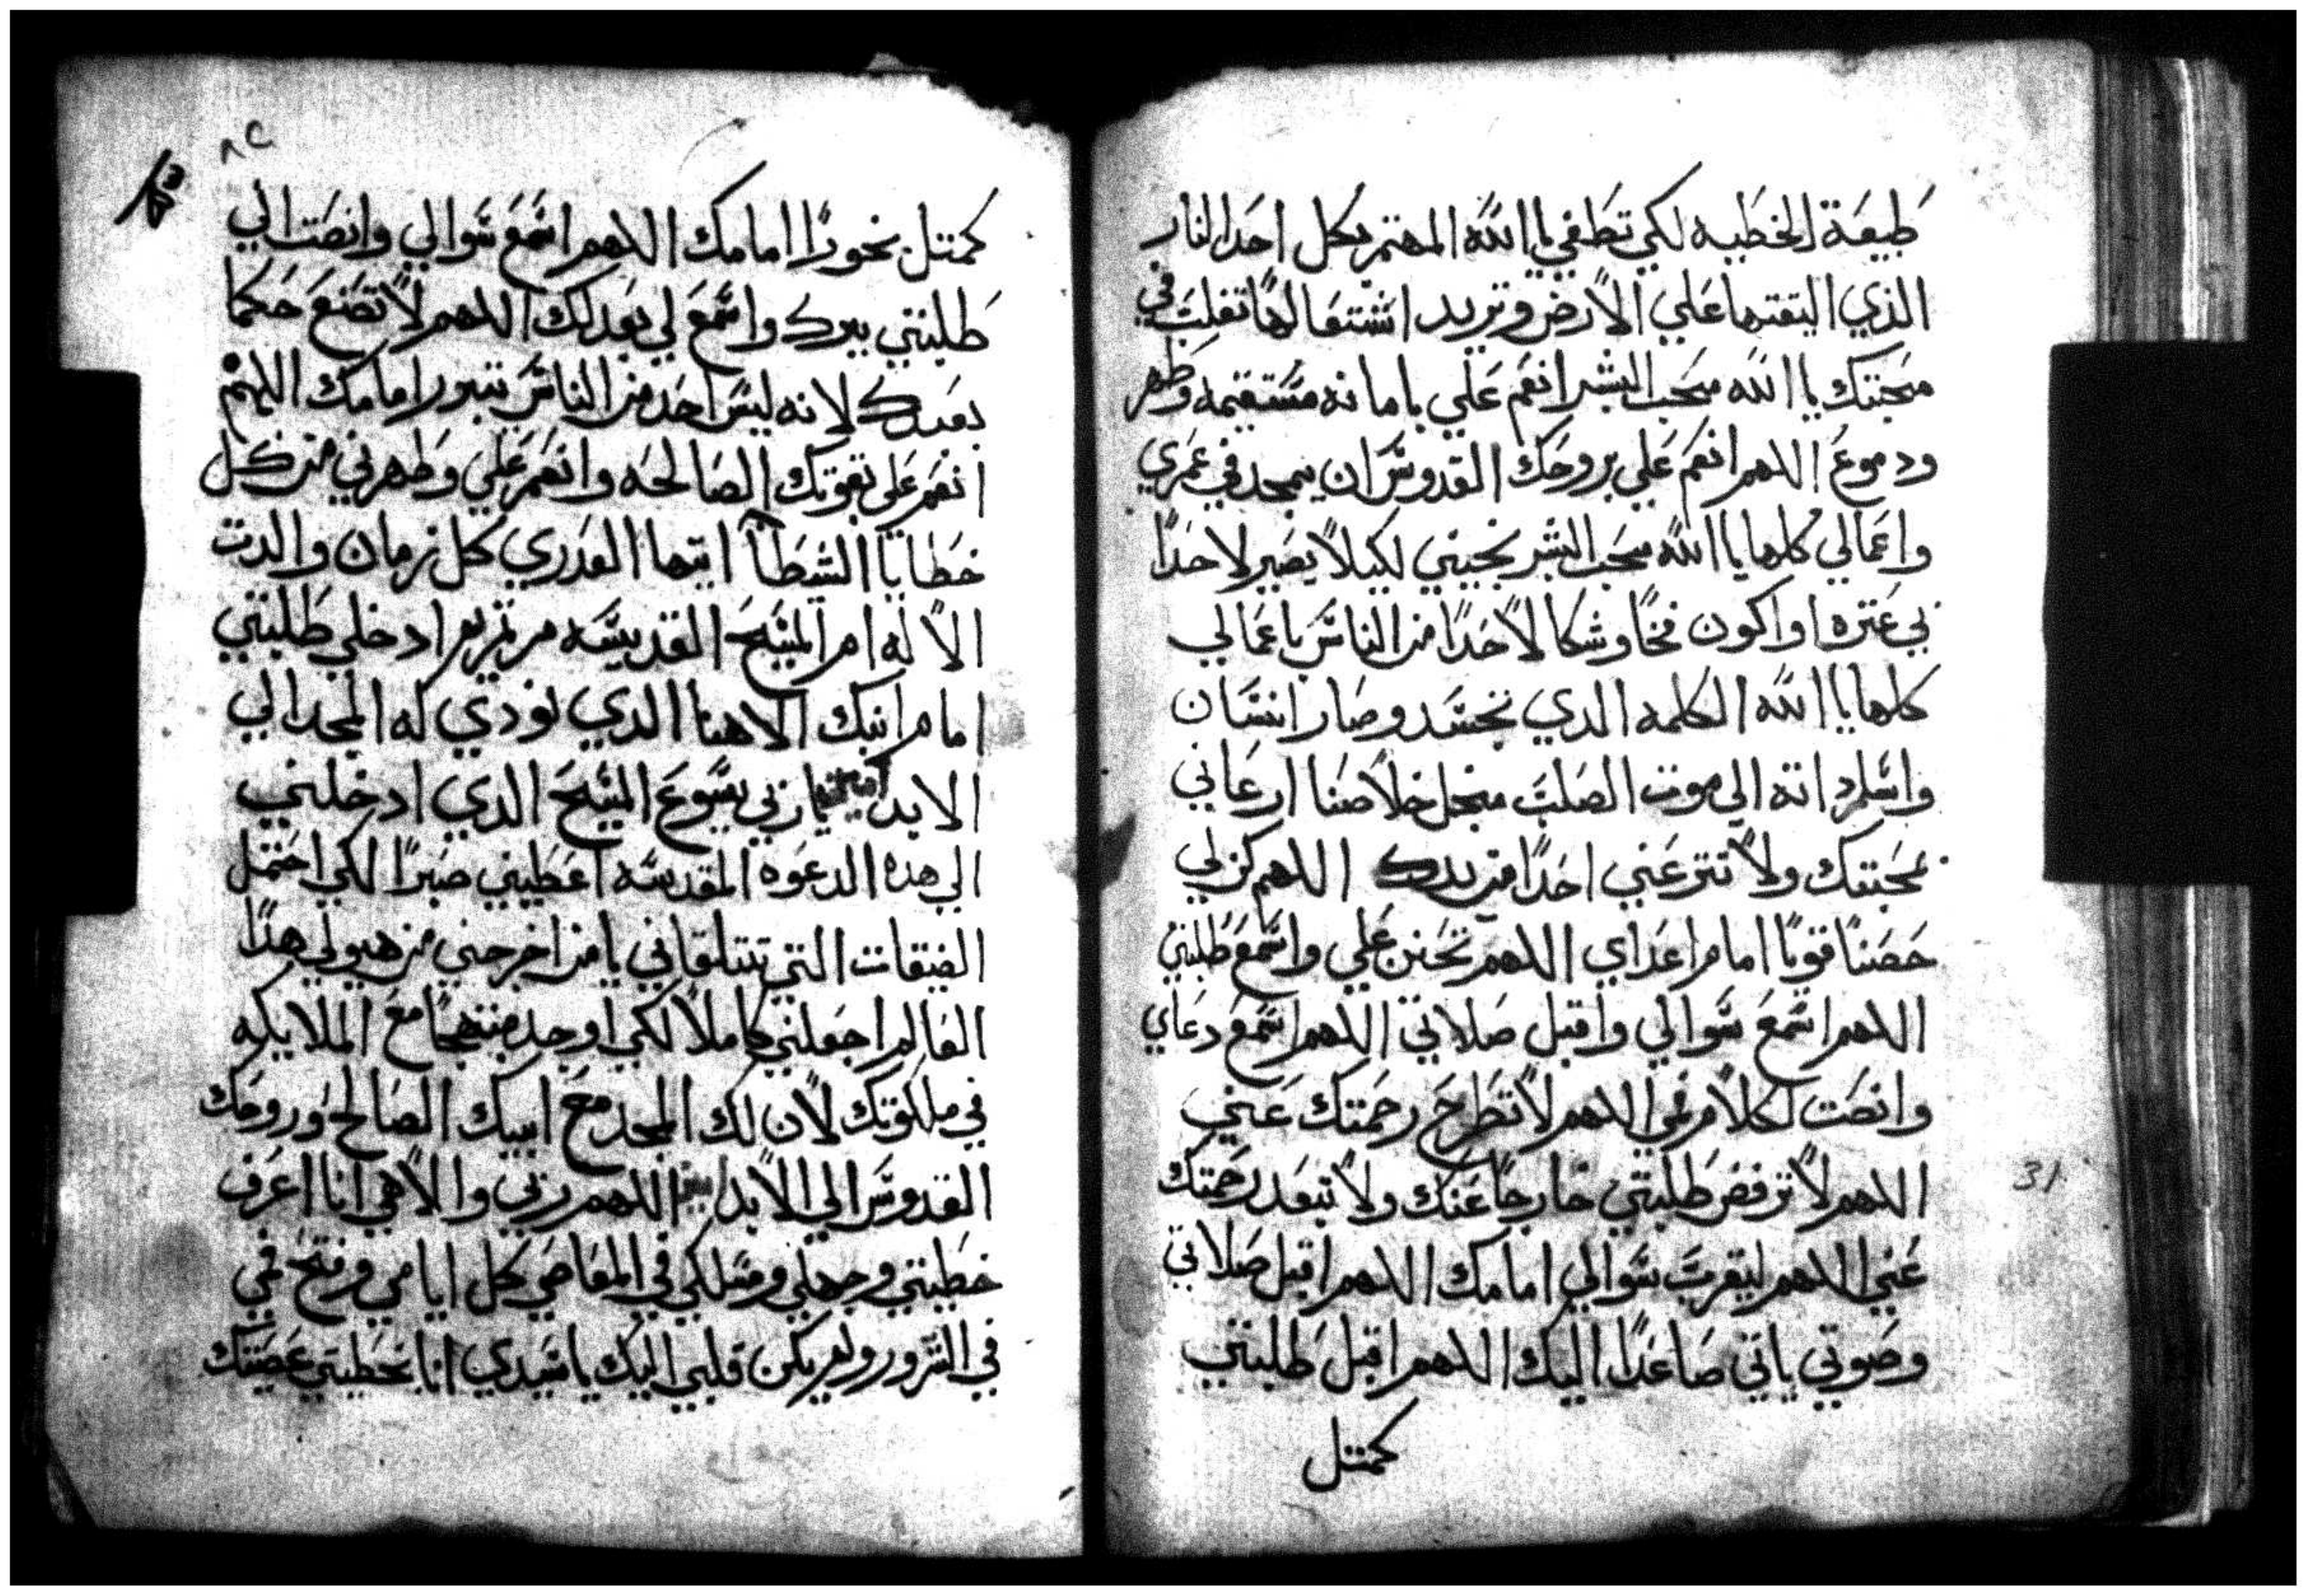 طبيعة الخطيه لكي تطفي يا الله المهتم بكل احد النار
الذي اليتقتها علي الارض وتريد اشتعالها تغلب في
محبتك يا الله محب البشر انعم علي بامانه مستقيمه وطهر
ودموع اللهم انعم علي بروحك القدوس ان يمجد في عمري
واعمالي كلها يا الله محب البشر نجيني لكيلا يصير لاحدًا
بي عتره او اكون فخًا وشكا لاحدًا من الناس باعمالي
كلها يا الله الكلمه الدي تجسد وصار انسان
واسلم داته الي موت الصلب منجل خلاصنا ارعاني
بمحبتك ولا تنزعني احدًا من يدك اللهم كن لي
حصنًا قويًا امام اعداي اللهم تحنن علي واسمع طلبتي
اللهم اسمع سوالي واقبل صلاتي اللهم اسمع دعاي
وانصت لكلام فمي اللهم لا تطرح رحمتك عني
اللهم لا ترفض طلبتي خارجًا عنك ولا تبعد رحمتك
31
عني اللهم ليقرب سوالي امامك اللهم اقبل صلاتي
وصوتي ياتي صاعدًا اليك اللهم اقبل طلبتي
كمتل
٨٢
كمتل بخورًا امامك اللهم اسمع سوالي وانصت الي
طلبتي بيرك واسمع لي بعدلك اللهم لا تصنع حكما
بعبدك لانه ليس احد من الناس يتبرر امامك اللهم
انعم علي بقوتك الصالحه وانعم علي وطهرني من كل
خطايا الشطا ايتها العدري كل زمان والدت
الاله ام المسيح القديسه مرتمريم ادخلي طلبتي
امام ابنك الاهنا الدي لودي له المجد الي
الابد امين يا ربي يسوع المسيح الدي ادخلني
الي هده الدعوه المقدسه اعطيني صبرًا لكي احتمل
الضيقات التي تتلقاني يا من اخرجني من هيولي هدا
العالم اجعلني كاملا لكي اوجد مبتهجًا مع الملايكه
في ملكوتك لان لك المجد مع ابيك الصالح وروحك
القدوس الي الابد امين اللهم ربي والاهي انا اعرف
خطيتي وجهلي ومسلكي في المعاصي كل ايامي وفتح فمي
في الشرور ولم يكن قلبي اليك يا سيدي انا بخطيتي عصيتك